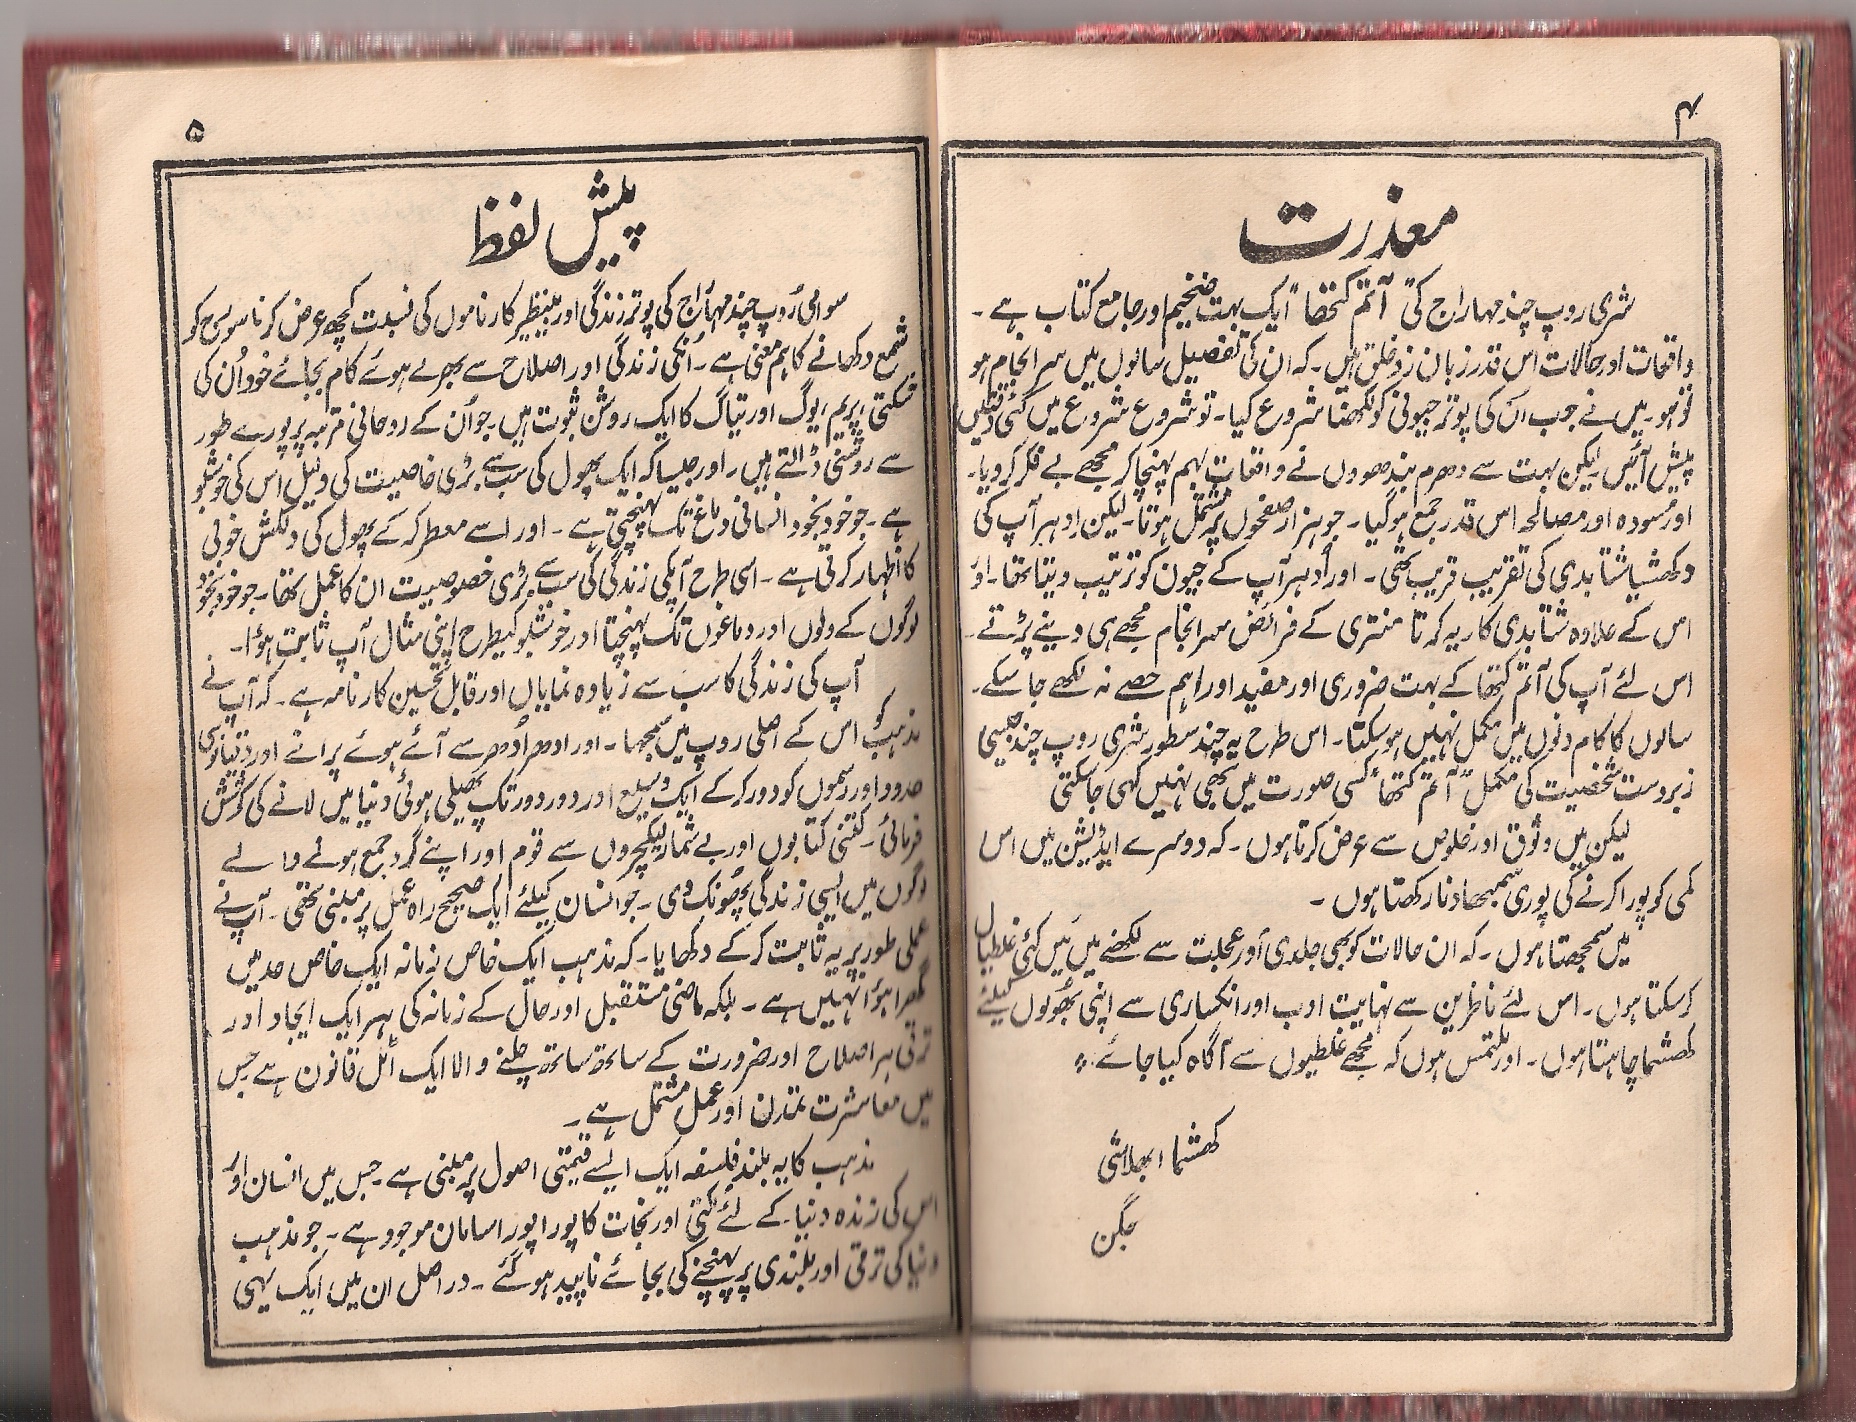 ۴
معذرت
شری روپ چند مہاراج کی "آتم کتھا" ایک بہت ضخیم اور جامع کتاب ہے۔
واقعات اور حالات اس قدر زبان زد خلق ہیں۔ کہ ان کی تفصیل سالوں میں سر انجام ہو
تو ہو۔ میں نے جب ان کی پوتر جیونی کو لکھنا شروع کیا۔ تو شروع شروع میں کئی دقتیں
پیش آئیں لیکن بہت سے دھرم بندھووں نے واقعات بہم پہنچا کر مجھے بے فکر کر دیا۔
اور مسودہ اور مصالحہ اس قدر جمع ہو گیا۔ جو ہزار صفحوں پر مشتمل ہوتا۔ لیکن ادہر آپ کی
دکھشیا شتابدی کی تقریب قریب تھی۔ اور اُدہر آپ کے جیون کو ترتیب دینا تھا۔ اور
اس کے علاوہ شتابدی کاریہ کرتا منتری کے فرائض سر انجام مجھے ہی دینے پڑتے۔
اس لئے آپ کی آتم کتھا کے بہت ضروری اور مفید اور اہم حصے نہ لکھے جا سکے۔
سالوں کا کام دنوں میں مکمل نہیں ہو سکتا۔ اس طرح یہ چند سطور شری روپ چند جیسی
زبردست شخصیت کی مکمل "آتم کتھا" کسی صورت میں بھی نہیں کہی جا سکتی
لیکن میں وثوق اور خلوص سے عرض کرتا ہوں۔ کہ دوسرے ایڈیشن میں اس
کمی کو پورا کرنے کی پوری سمبھاونا رکھتا ہوں۔
میں سمجھتا ہوں۔ کہ ان حالات کو بھی جلدی اور عجلت سے لکھنے میں میں کئی غلطیاں
کر سکتا ہوں۔ اس لئے ناظرین سے نہایت ادب اور انکساری سے اپنی بھُولوں کیلئے
کھشما چاہتا ہوں۔ اور ملتمس ہوں کہ مجھے غلطیوں سے آگاہ کیا جائے۔
کھشما ابھلاشی
جگن
۵
پیش لفظ
سوامی رُوپ چند مہاراج کی پوتر زندگی اور بینظیر کارناموں کی نسبت کچھ عرض کرنا سورج کو
شمع دکھانے کا ہم معنی ہے۔ اُنکی زندگی اور اصلاح سے بھرے ہوئے کام بجائے خود اُن کی
شکتی، پریم، یوگ اور تیاگ کا ایک روشن ثبوت ہیں۔ جو اُن کے روحانی مرتبہ پر پورے طور
سے روشنی ڈالتے ہیں۔ اور جیسا کہ ایک پھول کی سب سے بڑی خاصیت کی دلیل اس کی خوشبو
ہے۔ جو خود بخود انسانی دماغ تک پہنچتی ہے۔ اور اسے معطر کر کے پھول کی دلکش خوبی
کا اظہار کرتی ہے۔ اسی طرح آپکی زندگی کی سب سے بڑی خصوصیت ان کا عمل تھا۔ جو خود بخود
لوگوں کے دلوں اور دماغوں تک پہنچتا اور خوشبو کیطرح اپنی مثال آپ ثابت ہؤا۔
آپ کی زندگی کا سب سے زیادہ نمایاں اور قابل تحسین کارنامہ ہے۔ کہ آپ نے
مذہب کو اس کے اصلی روپ میں سمجھا۔ اور ادھر اُدھر سے آئے ہوئے پرانے اور دقیانوسی
حدود اور رسموں کو دور کر کے ایک وسیع اور دور دور تک پھیلی ہوئی دنیا میں لانے کی کوشش
فرمائی۔ کتنی کتابوں اور بے شمار لیکچروں سے قوم اور اپنے گرد جمع ہونے والے
لوگوں میں ایسی زندگی پھونک دی۔ جو انسان کیلئے ایک صحیح راہ عمل پر مبنی تھی۔ آپ نے
عملی طور پر یہ ثابت کر کے دکھایا۔ کہ مذہب ایک خاص زمانہ ایک خاص حد میں
گھرا ہؤا نہیں ہے۔ بلکہ ماضی مستقبل اور حال کے زمانہ کی ہر ایک ایجاد اور
ترقی ہر اصلاح اور ضرورت کے ساتھ ساتھ چلنے والا ایک اٹل قانون ہے جس
میں معاشرت تمدن اور عمل مشتمل ہے۔
مذہب کا یہ بلند فلسفہ ایک ایسے قیمتی اصول پر مبنی ہے۔ جس میں انسان اور
اس کی زندہ دنیا کے لئے مکتی اور نجات کا پورا پورا سامان موجود ہے۔ جو مذہب
دنیا کی ترقی اور بلندی پر پہنچنے کی بجائے ناپید ہو گئے۔ در اصل ان میں ایک یہی